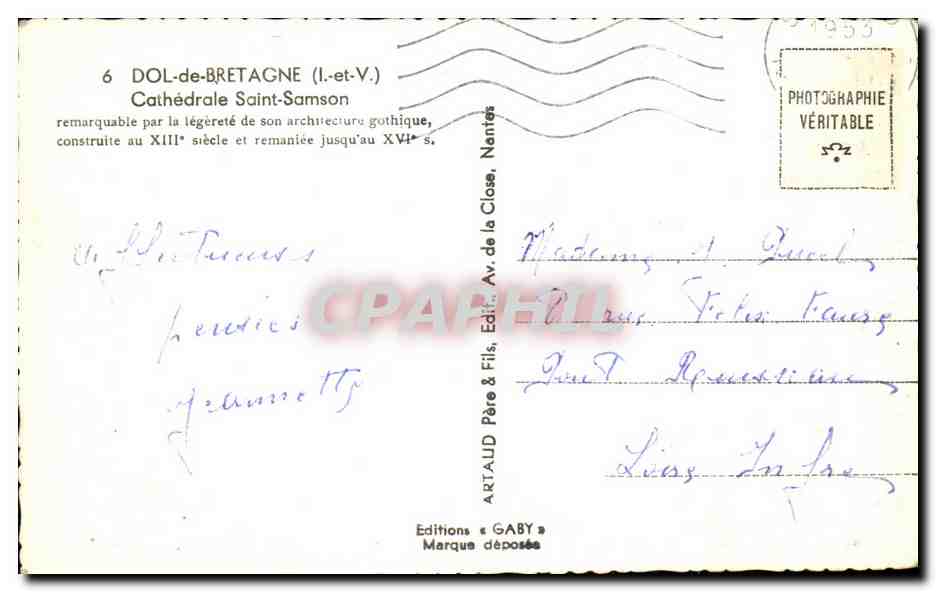 1953
6 DOL-de-BRETAGNE (I.-et-V.)
Cathédrale Saint-Samson
remarquable par la légèreté de son architecture gothique,
construite au XIIIe siècle et remaniée jusqu'au XVIe s.
PHOTOGRAPHIE
VÉRITABLE
affectueuses
pensées
Jeannette
ARTAUD Père & Fils, Edit., Av. de la Close, Nantes
Madame
rue Felix Faure
Pont Rousseau
Loire Infre
CPAPHIL
Editions « GABY »
Marque déposée